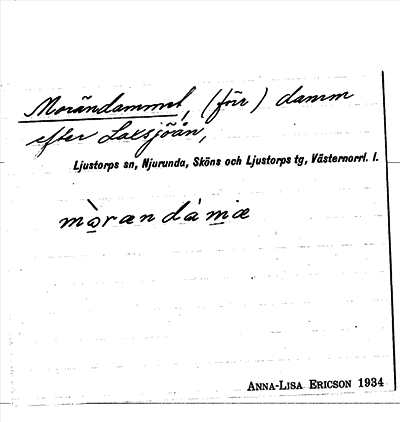 Morändammet, (förr) damm
efter Laxsjöån,
Ljustorps sn, Njurunda, Sköns och Ljustorps tg, Västernorrl. l.
mòrændàmæ
ANNA-LISA ERICSON 1934